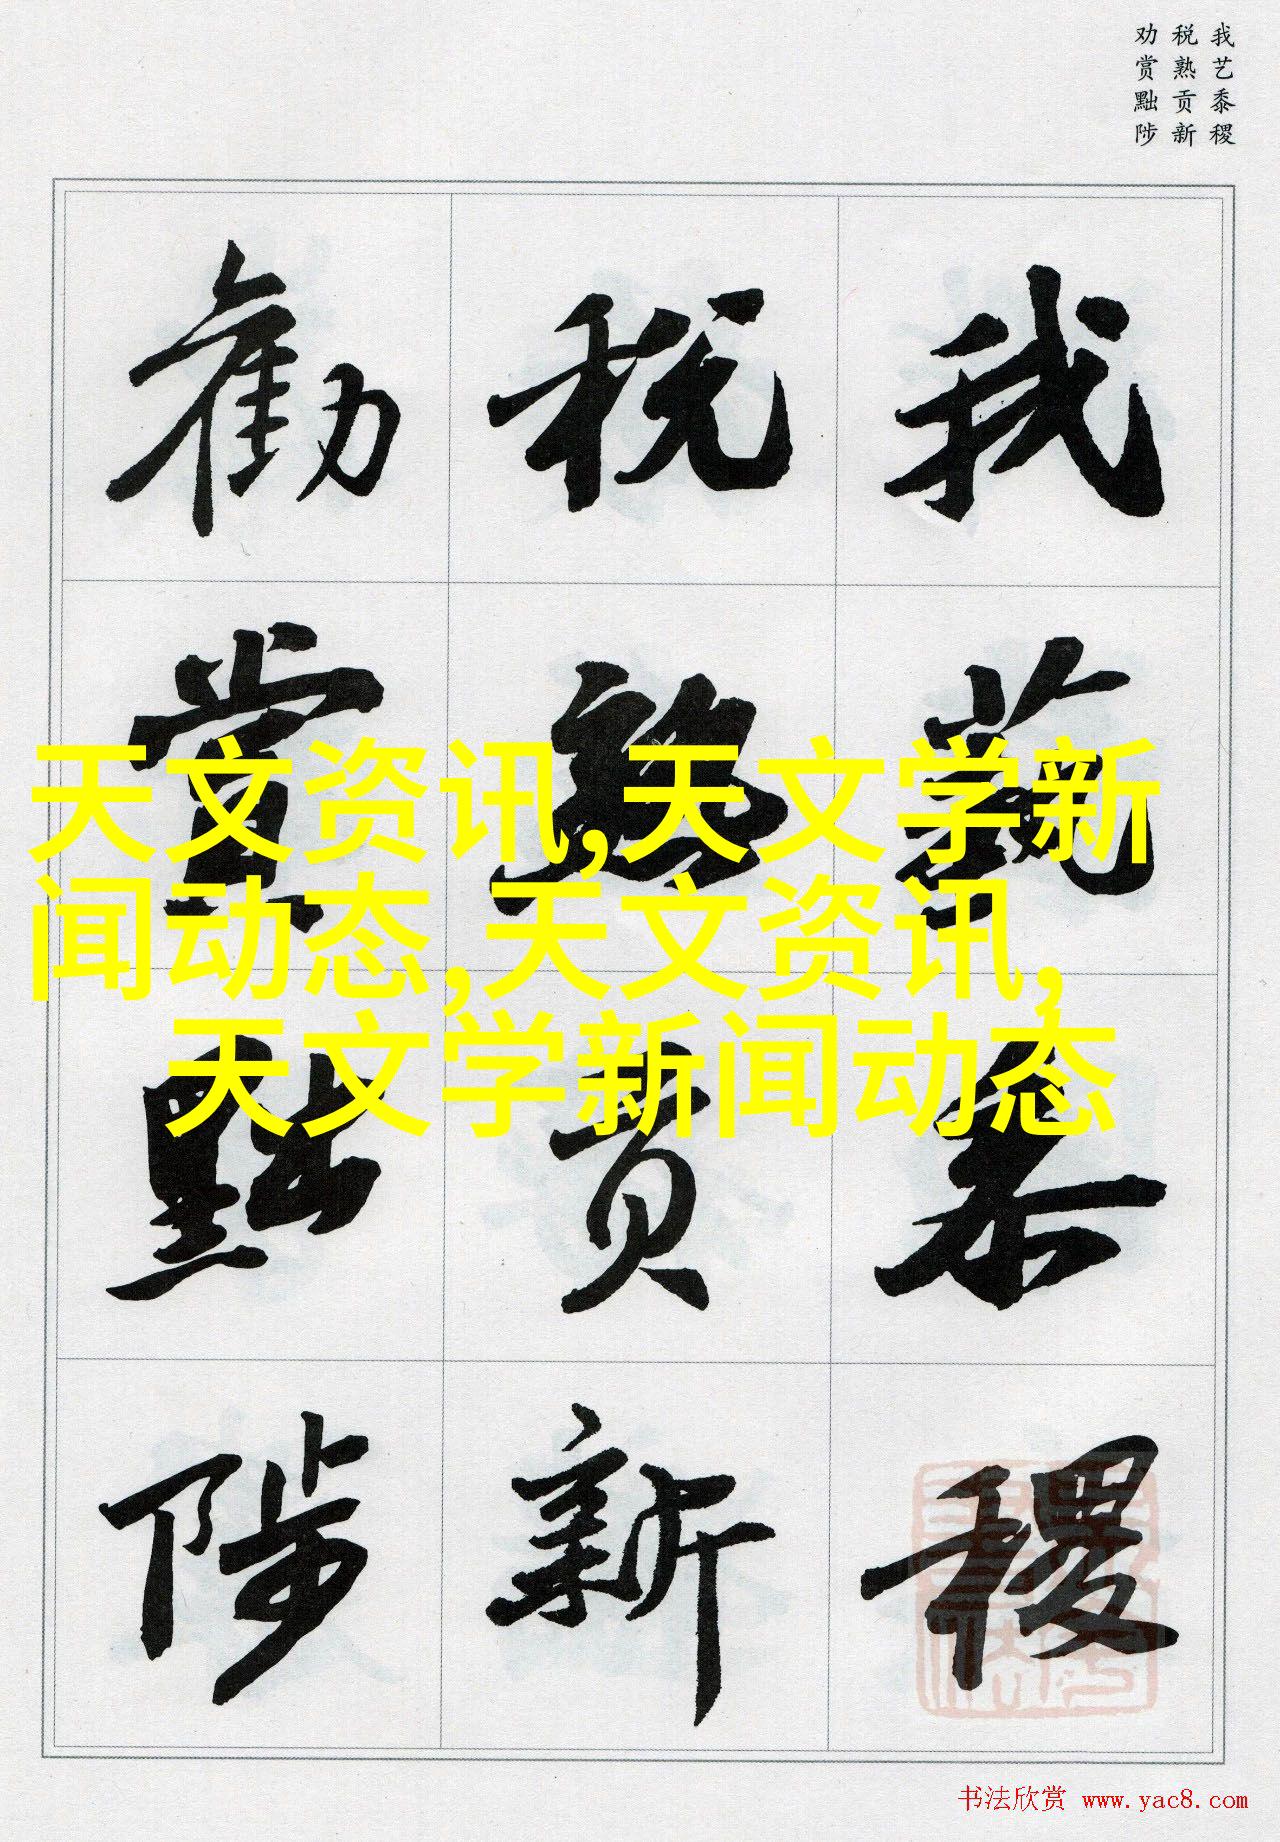 我艺黍稷
税熟贡新
劝赏黜陟
我藝黍稷
税熟貢新
勸賞黜陟
天文资讯,天文学新
闻动态,天文资讯,
天文学新闻动态
书法欣赏 www.yac8.com